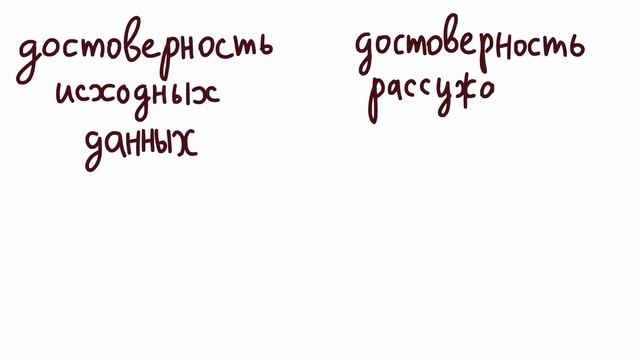 достоверность
исходных
данных
достоверность
рассужо